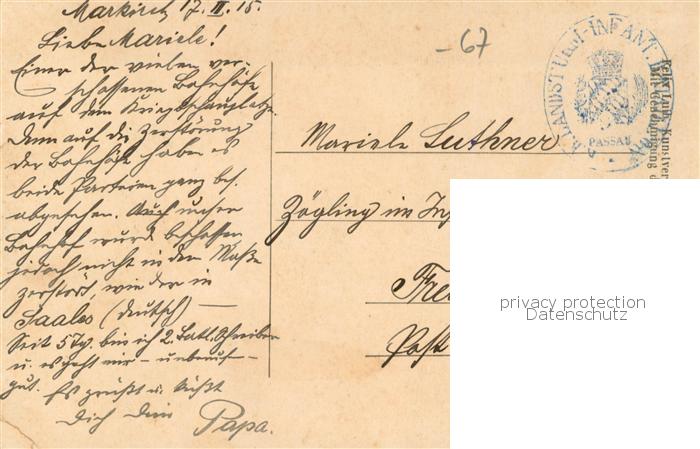 Markirch 17. III. 15.
Liebe Mariele!
Einer der vielen zer-
schossenen Bahnhöfe
auf dem Kriegsschauplatze.
Denn auf die Zerstörung
der Bahnhöfe haben es
beide Parteien ganz bes.
abgesehen. Auch unser
Bahnhof wurde beschossen
jedoch nicht in dem Maße
zerstört, wie der in
Saales (deutsch) —
Seit 5 Tg. bin ich 2. Batl. Schreiber
u. es geht mir – unberuf –
gut. Es grüßt u. küßt
Dich Dein Papa.
-67
LANDSTURM-INFANT.
PASSAU
Mariele Luthner
Zögling im
Post
privacy protection
Datenschutz